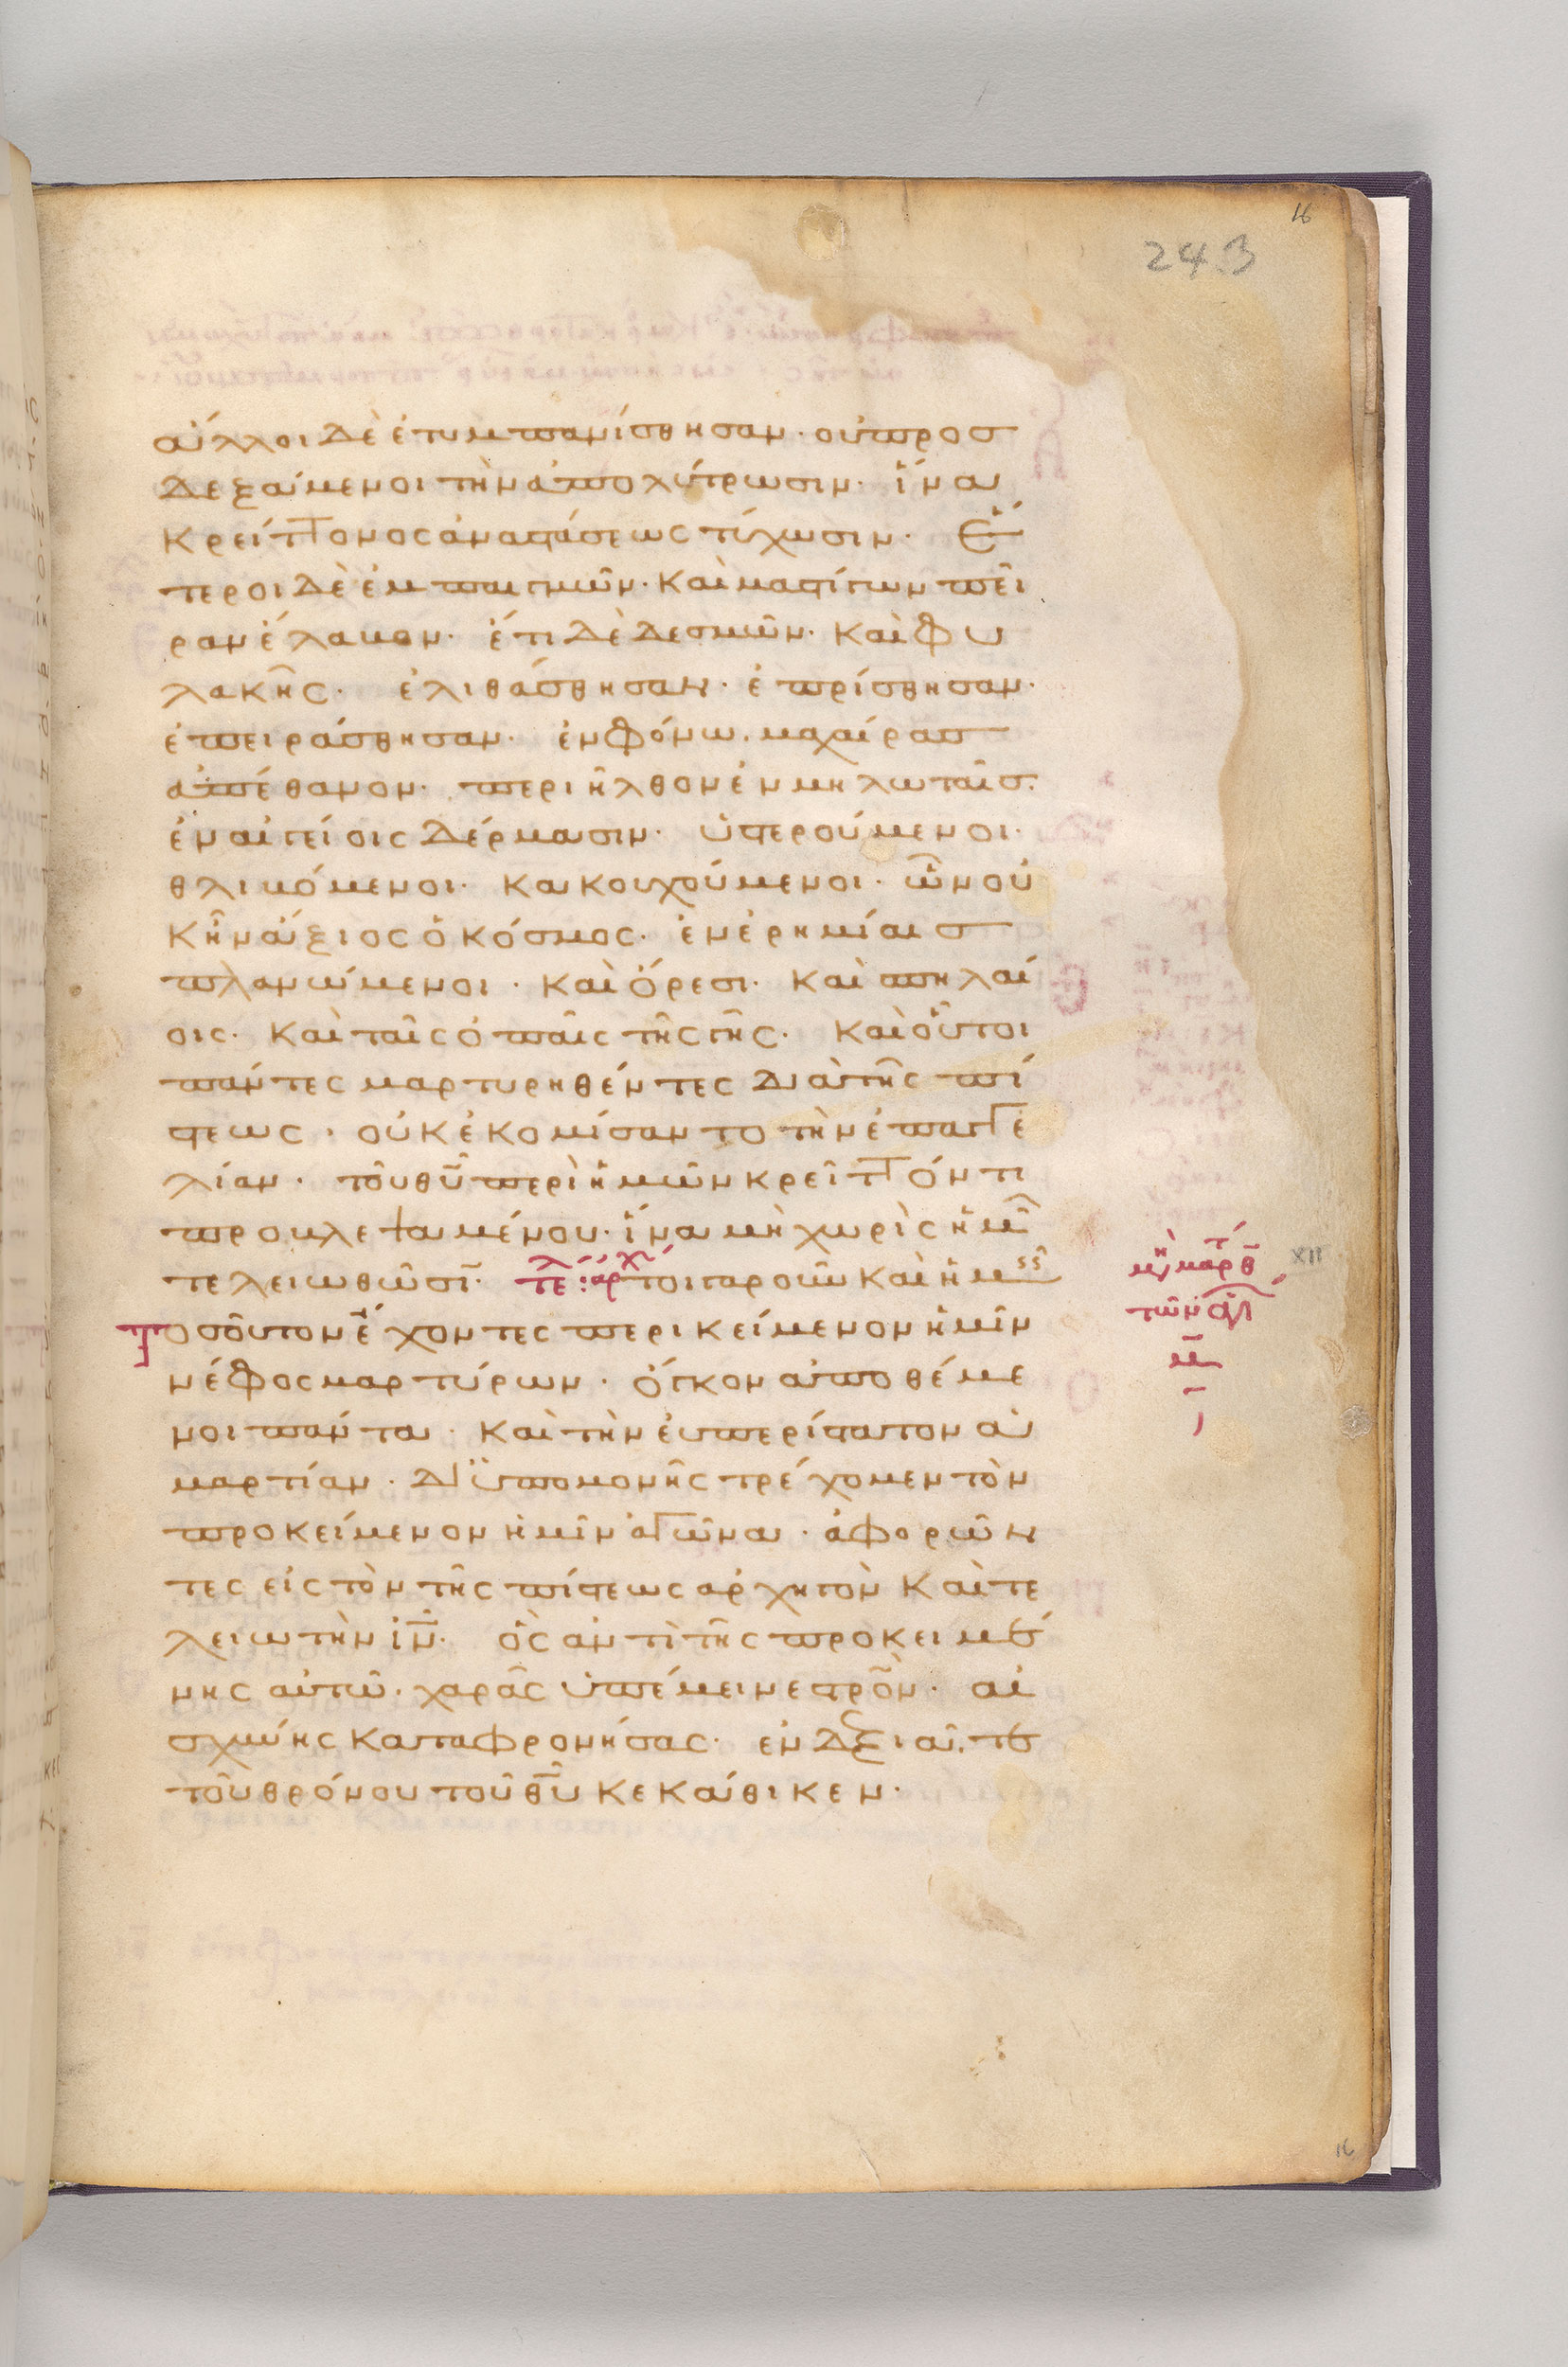 16
243
ἄλλοι δὲ ἐτυμπανίσθησαν· οὐ προσ
δεξάμενοι τὴν ἀπολύτρωσιν· ἵνα
κρείττονος ἀναστάσεως τύχωσιν· Ἕ
τεροι δὲ ἐμπαιγμῶν· καὶ μαστίγων πεῖ
ραν ἔλαβον· ἔτι δὲ δεσμῶν· καὶ φυ
λακῆς· ἐλιθάσθησαν· ἐπρίσθησαν·
ἐπειράσθησαν· ἐν φόνω. μαχαίρασ
ἀπέθανον· περιῆλθον ἐν μηλωταῖσ.
ἐν αἰγείοις δέρμασιν· ὑστερούμενοι·
θλιβόμενοι· κακουχούμενοι· ὧν οὐ
κ ἦν ἄξιος ὁ κόσμος· ἐν ἐρημίαισ
πλανώμενοι· καὶ ὄρεσι· καὶ σπηλαί
οις· καὶ ταῖς ὀπαῖς τῆς γῆς· καὶ οὗτοι
πάντες μαρτυρηθέντες διὰ τῆς πί
στεως· οὐκ ἐκομίσαντο τὴν ἐπαγγε
λίαν· τοῦ θῦ περὶ ἡμῶν κρεῖττόν τι
προβλεψαμένου· ἵνα μὴ χωρὶς ἡμῶν
τελειωθῶσῑ· τε: ἀρχ τοιγαροῦν καὶ ἡμεῖς
Τοσοῦτον ἔχοντες περικείμενον ἡμῖν
νέφος μαρτύρων· ὄγκον ἀποθέμε
νοι πάντα· καὶ τὴν εὐπερίστατον ἁ
μαρτίαν· δι ὑπομονῆς τρέχομεν τὸν
προκείμενον ἡμῖν ἀγῶνα· ἀφορῶν
τες εἰς τὸν τῆς πίστεως ἀρχηγὸν καὶ τε
λειωτὴν ἰν̄· ὃς ἀντὶ τῆς προκειμέ
νης αὐτῶ· χαρᾶς ὑπέμεινε στρο̄ν· αἰ
σχύνης καταφρονήσας· ἐν δεξιᾶ. τε
τοῦ θρόνου τοῦ θῦ κεκάθικεν·
XII
16